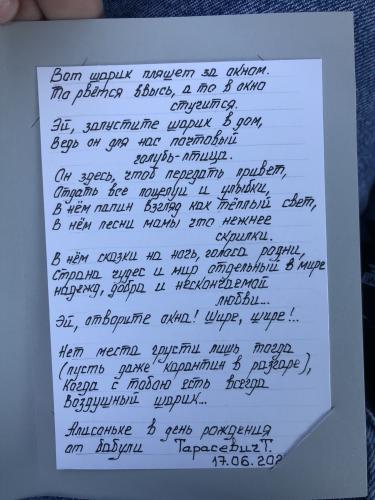 Вот шарик пляшет за окном.
То рвётся ввысь, а то в окна
стучится.
Эй, запустите шарик в дом,
Ведь он для нас почтовый
голубь-птица.
Он здесь, чтоб передать привет,
Отдать все поцелуи и улыбки,
В нём папин взгляд как тёплый свет,
В нём песни мамы что нежнее
скрипки.
В нём сказки на ночь, голоса родни,
Страна чудес и мир отдельный в мире
надежд, добра и нескончаемой
любви...
Эй, отворите окна! Шире, шире!..
Нет места грусти лишь тогда
(пусть даже карантин в разгаре),
Когда с тобою есть всегда
Воздушный шарик...
Алисоньке в день рождения
от бабули Тарасевич Т.
17.06.202